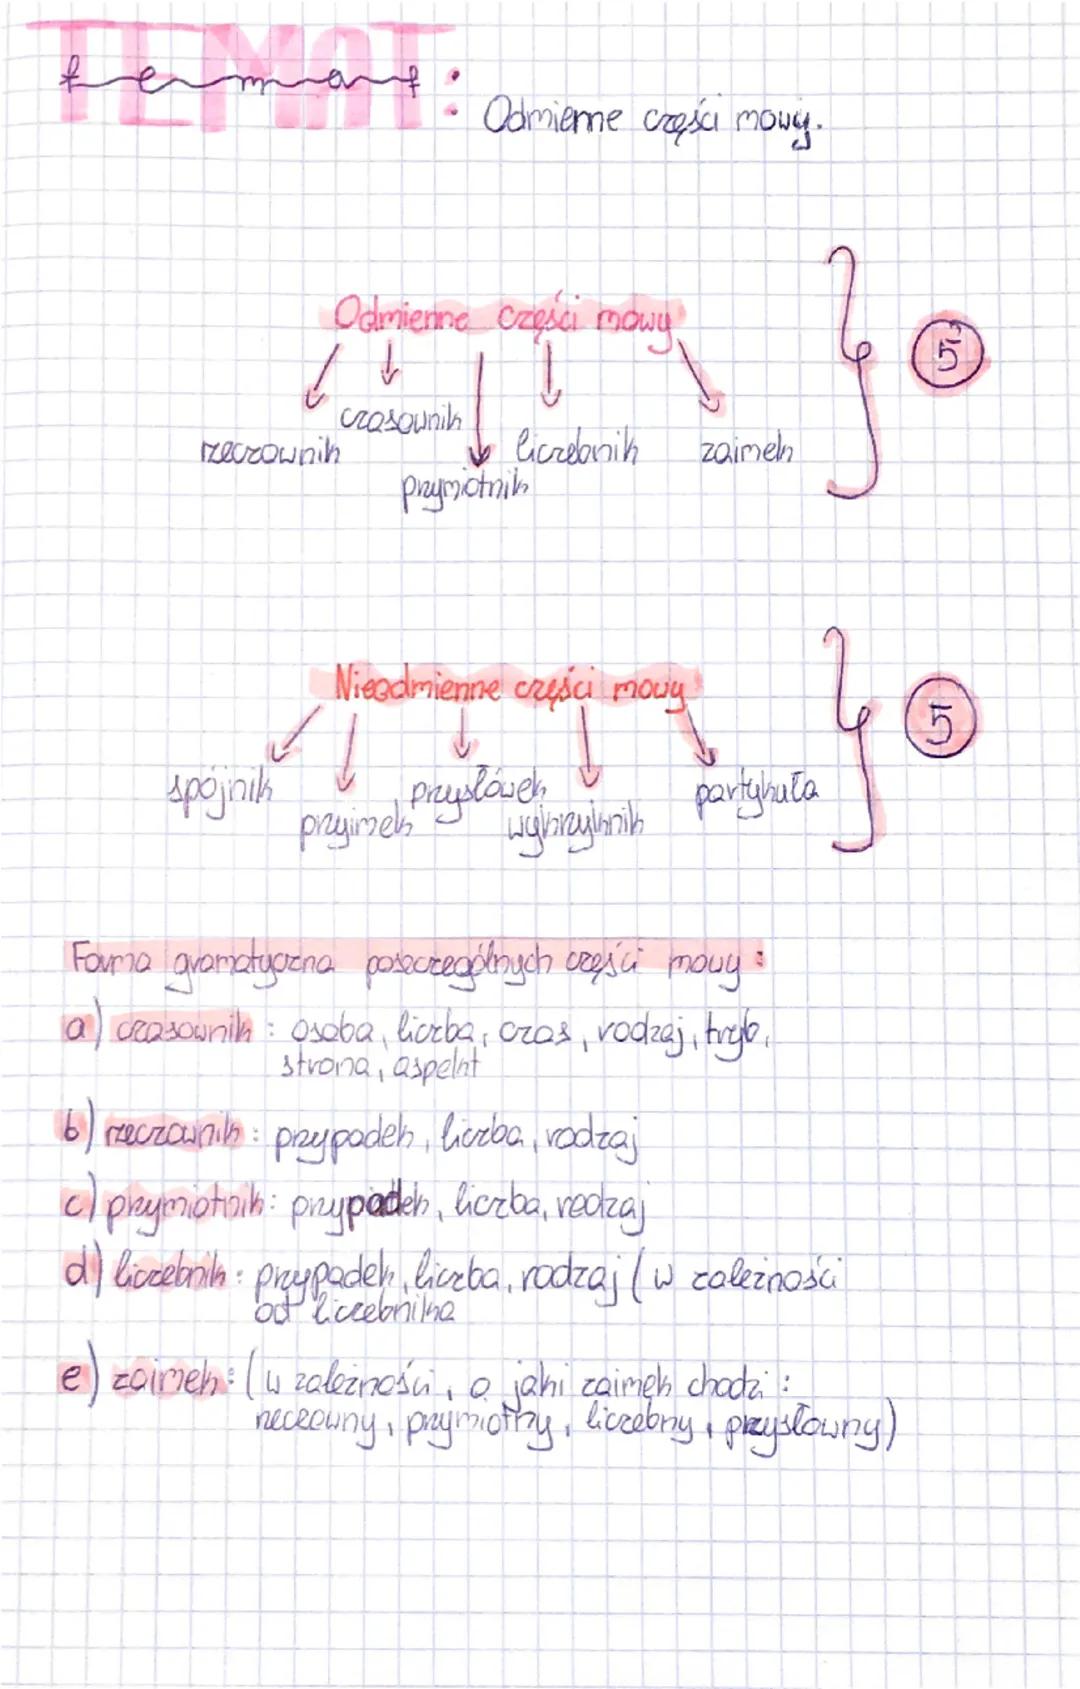 TEMAT:
temat:
Odmienne części mowy.
Odmienne części mowy
5
czasownik
rzeczownik
liczebnik
zaimek
przymiotnik
Nieodmienne części mowy
5
spójnik
przysłówek
partykuła
przyimek
wykrzyknik
Forma gramatyczna poszczególnych części mowy:
a) czasownik: osoba, liczba, czas, rodzaj, tryb,
strona, aspekt
b) rzeczownik: przypadek, liczba, rodzaj
c) przymiotnik: przypadek, liczba, rodzaj
d) liczebnik: przypadek, liczba, rodzaj (w zależności
od liczebnika
e) zaimek: (w zależności, o jaki zaimek chodzi:
rzeczowny, przymiotny, liczebny, przysłowny)